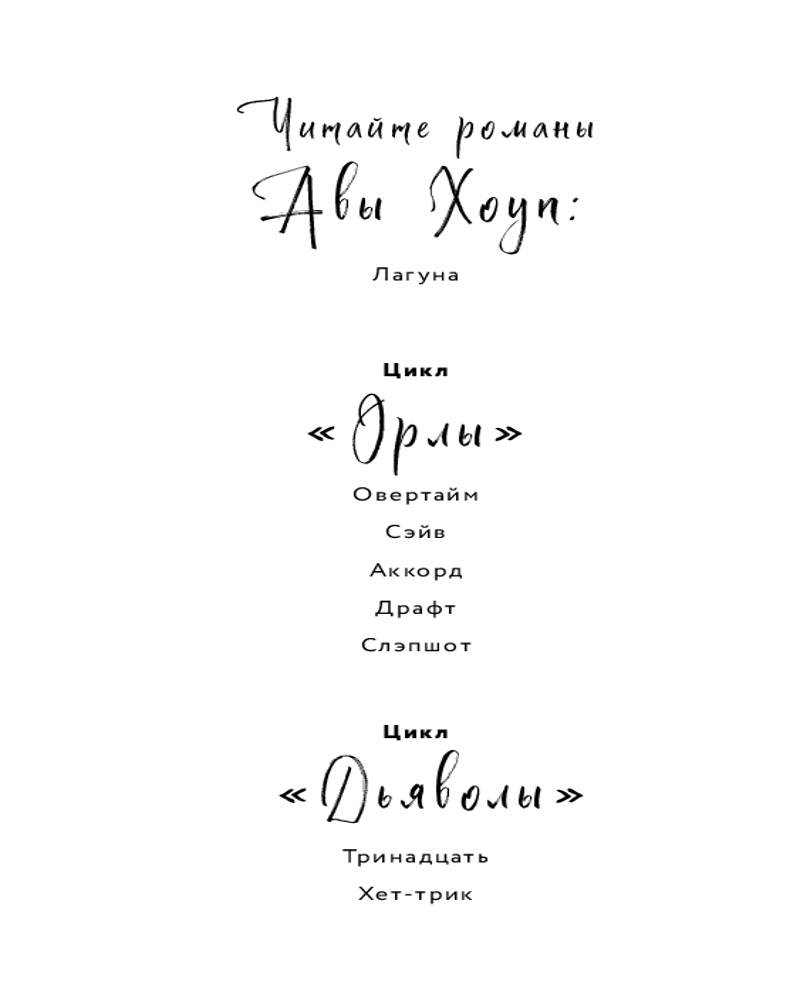 Читайте романы
Авы Хоуп:
Лагуна
Цикл
«Орлы»
Овертайм
Сэйв
Аккорд
Драфт
Слэпшот
Цикл
«Дьяволы»
Тринадцать
Хет-трик